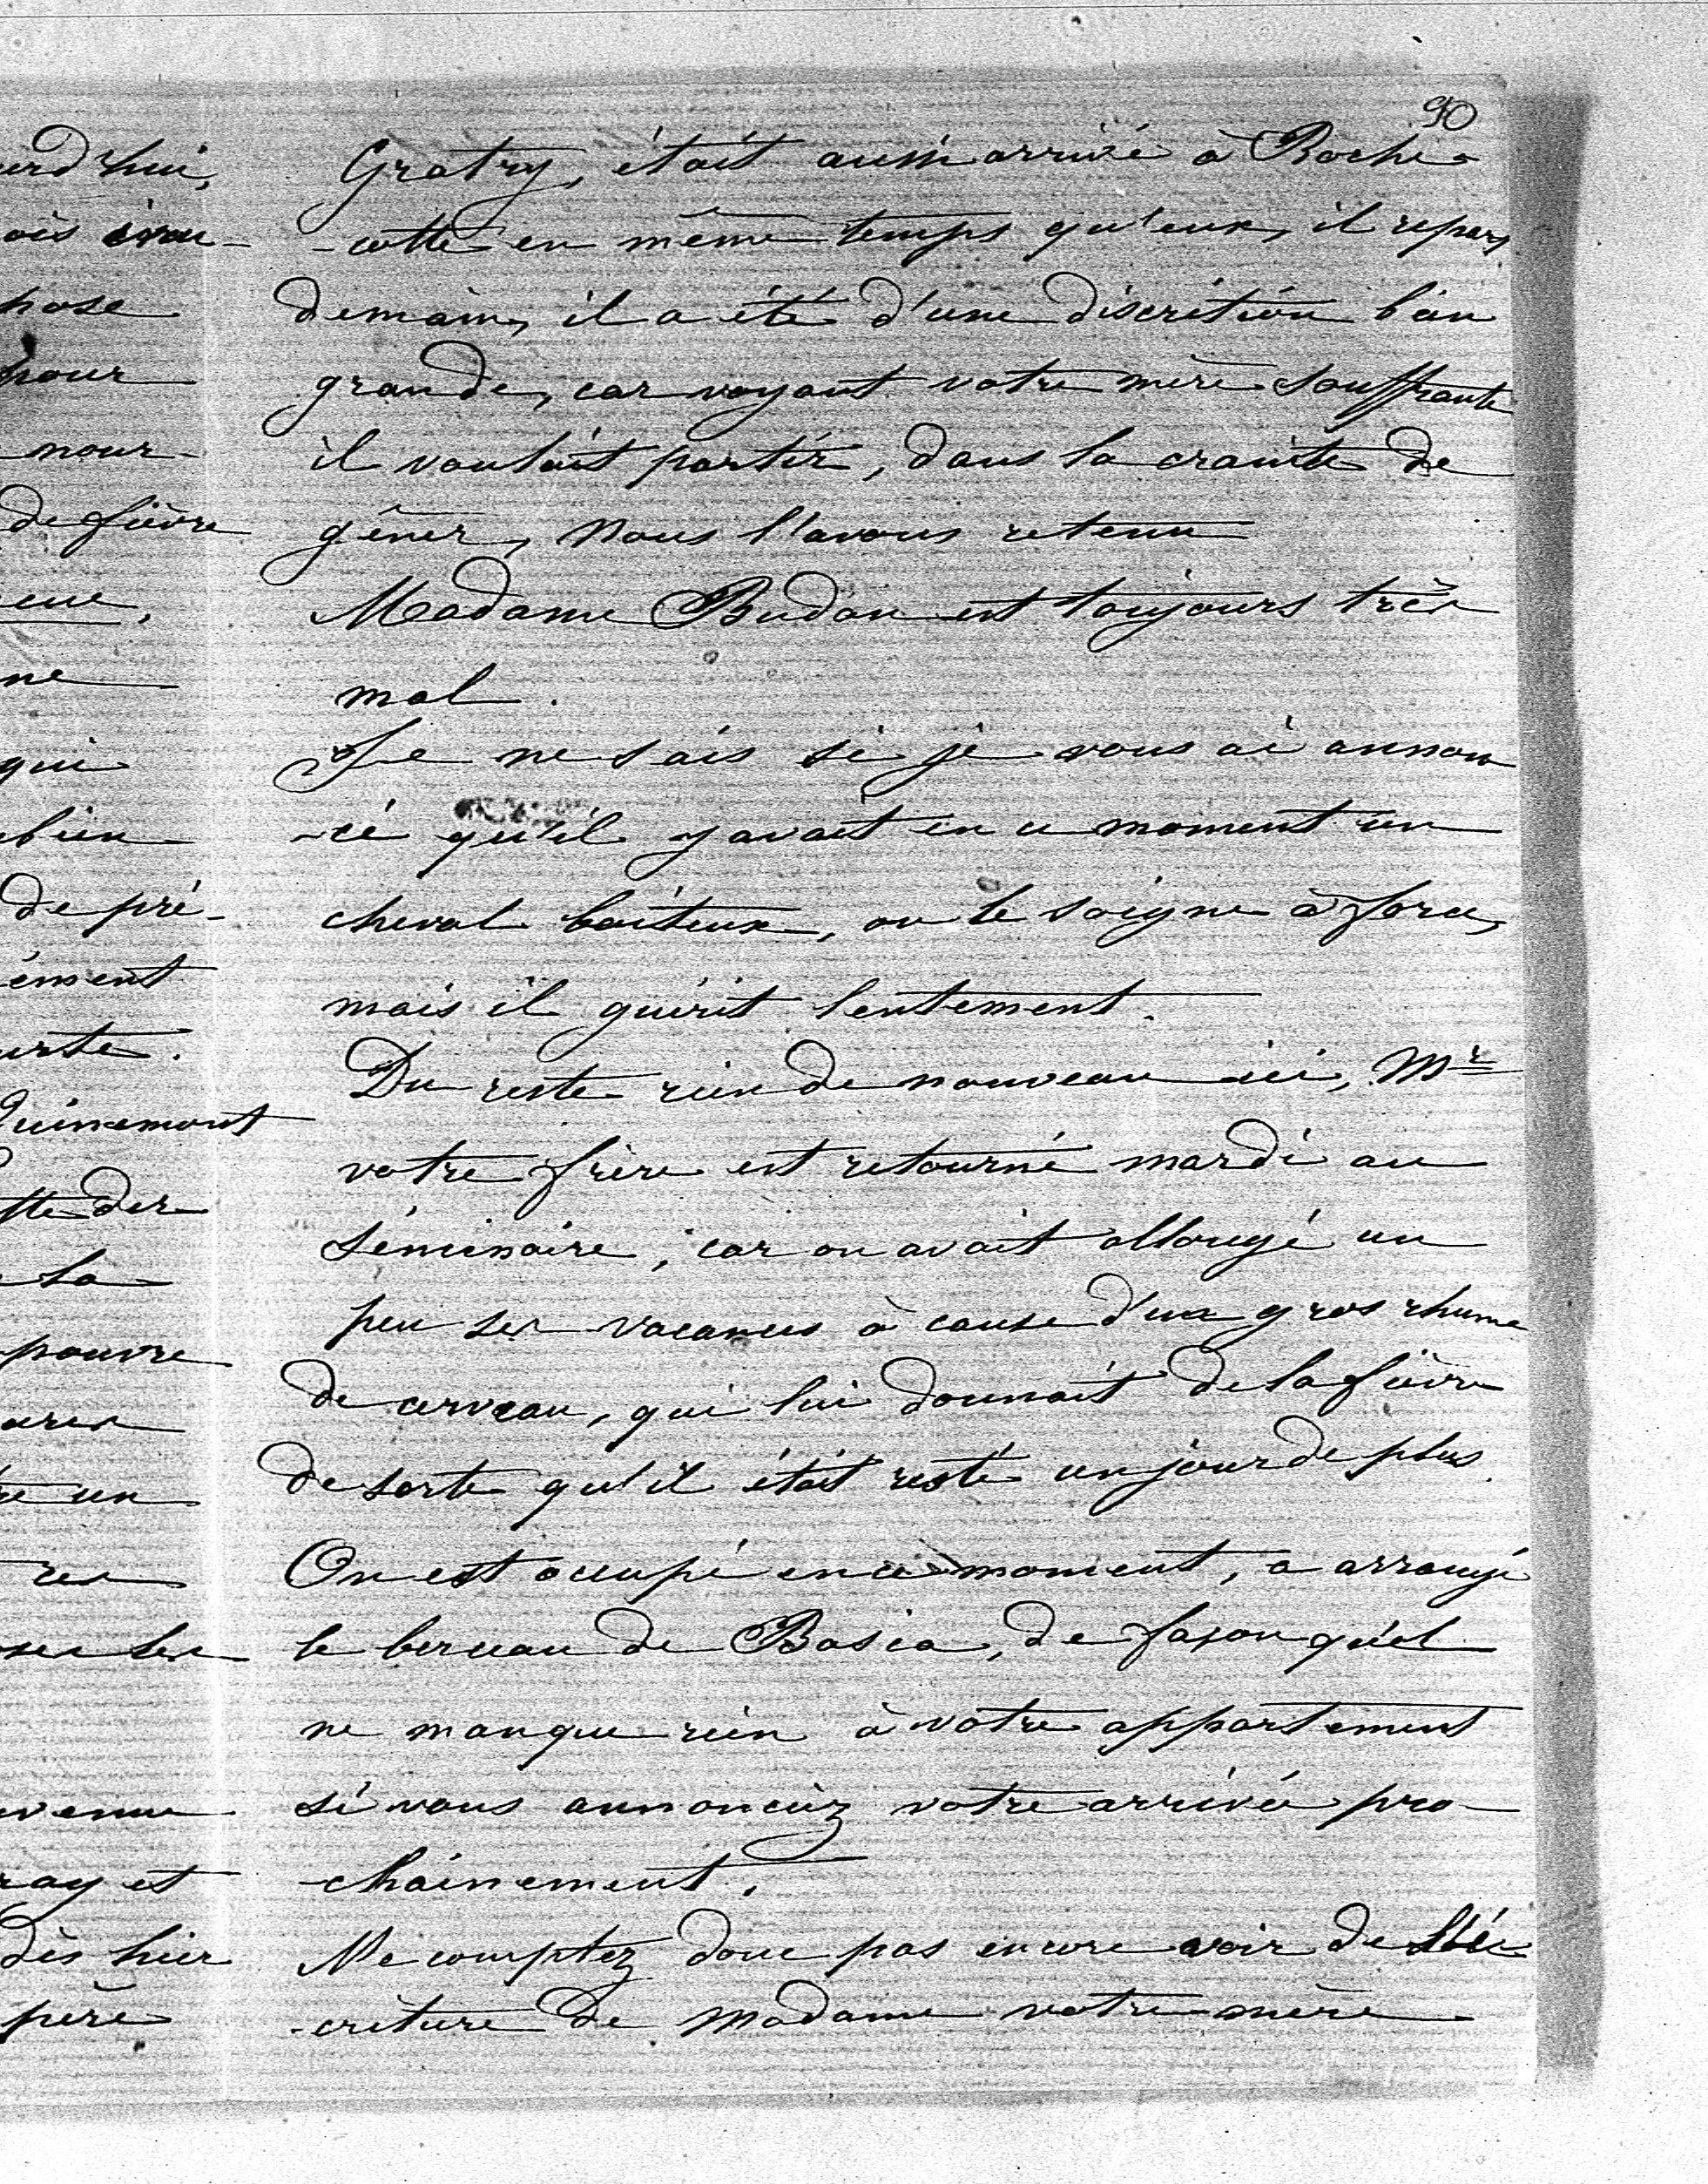 90
Gratry, était aussi arrivé à Roche-
-cotte en même temps qu'eux, il repars
demain, il a été d'une discrétion bien
grande, car voyant votre mère souffrante
il voulait partir, dans la crainte de
gêner, nous l'avons retenu
Madame Budan est toujours très
mal.
Je ne sais si je vous ai annon
-cé qu'il y avait en ce moment un
cheval boiteux, on le soigne à force,
mais il guérit lentement.
Du reste rien de nouveau ici, Mr
votre frère est retourné mardi au
séminaire, car on avait allongé un
peu ses vacances à cause d'un gros rhume
de cerveau, qui lui donnait de la fièvre
de sorte qu'il était resté un jour de plus.
On est occupé en ce moment, a arrangé
le berceau de Basia, de façon qu'il
ne manque rien à votre appartement
si vous annonciez votre arrivée pro-
-chainement.
Ne comptez donc pas encore avoir de l'é-
-criture de Madame votre mère
urd'hui,
pour
nour-
de fièvre
eue,
ne
qui
bien
de pré-
ément
urte.
Quinemont
tte des
la
pauvre
un
ses
venue
ray et
dès hier
père